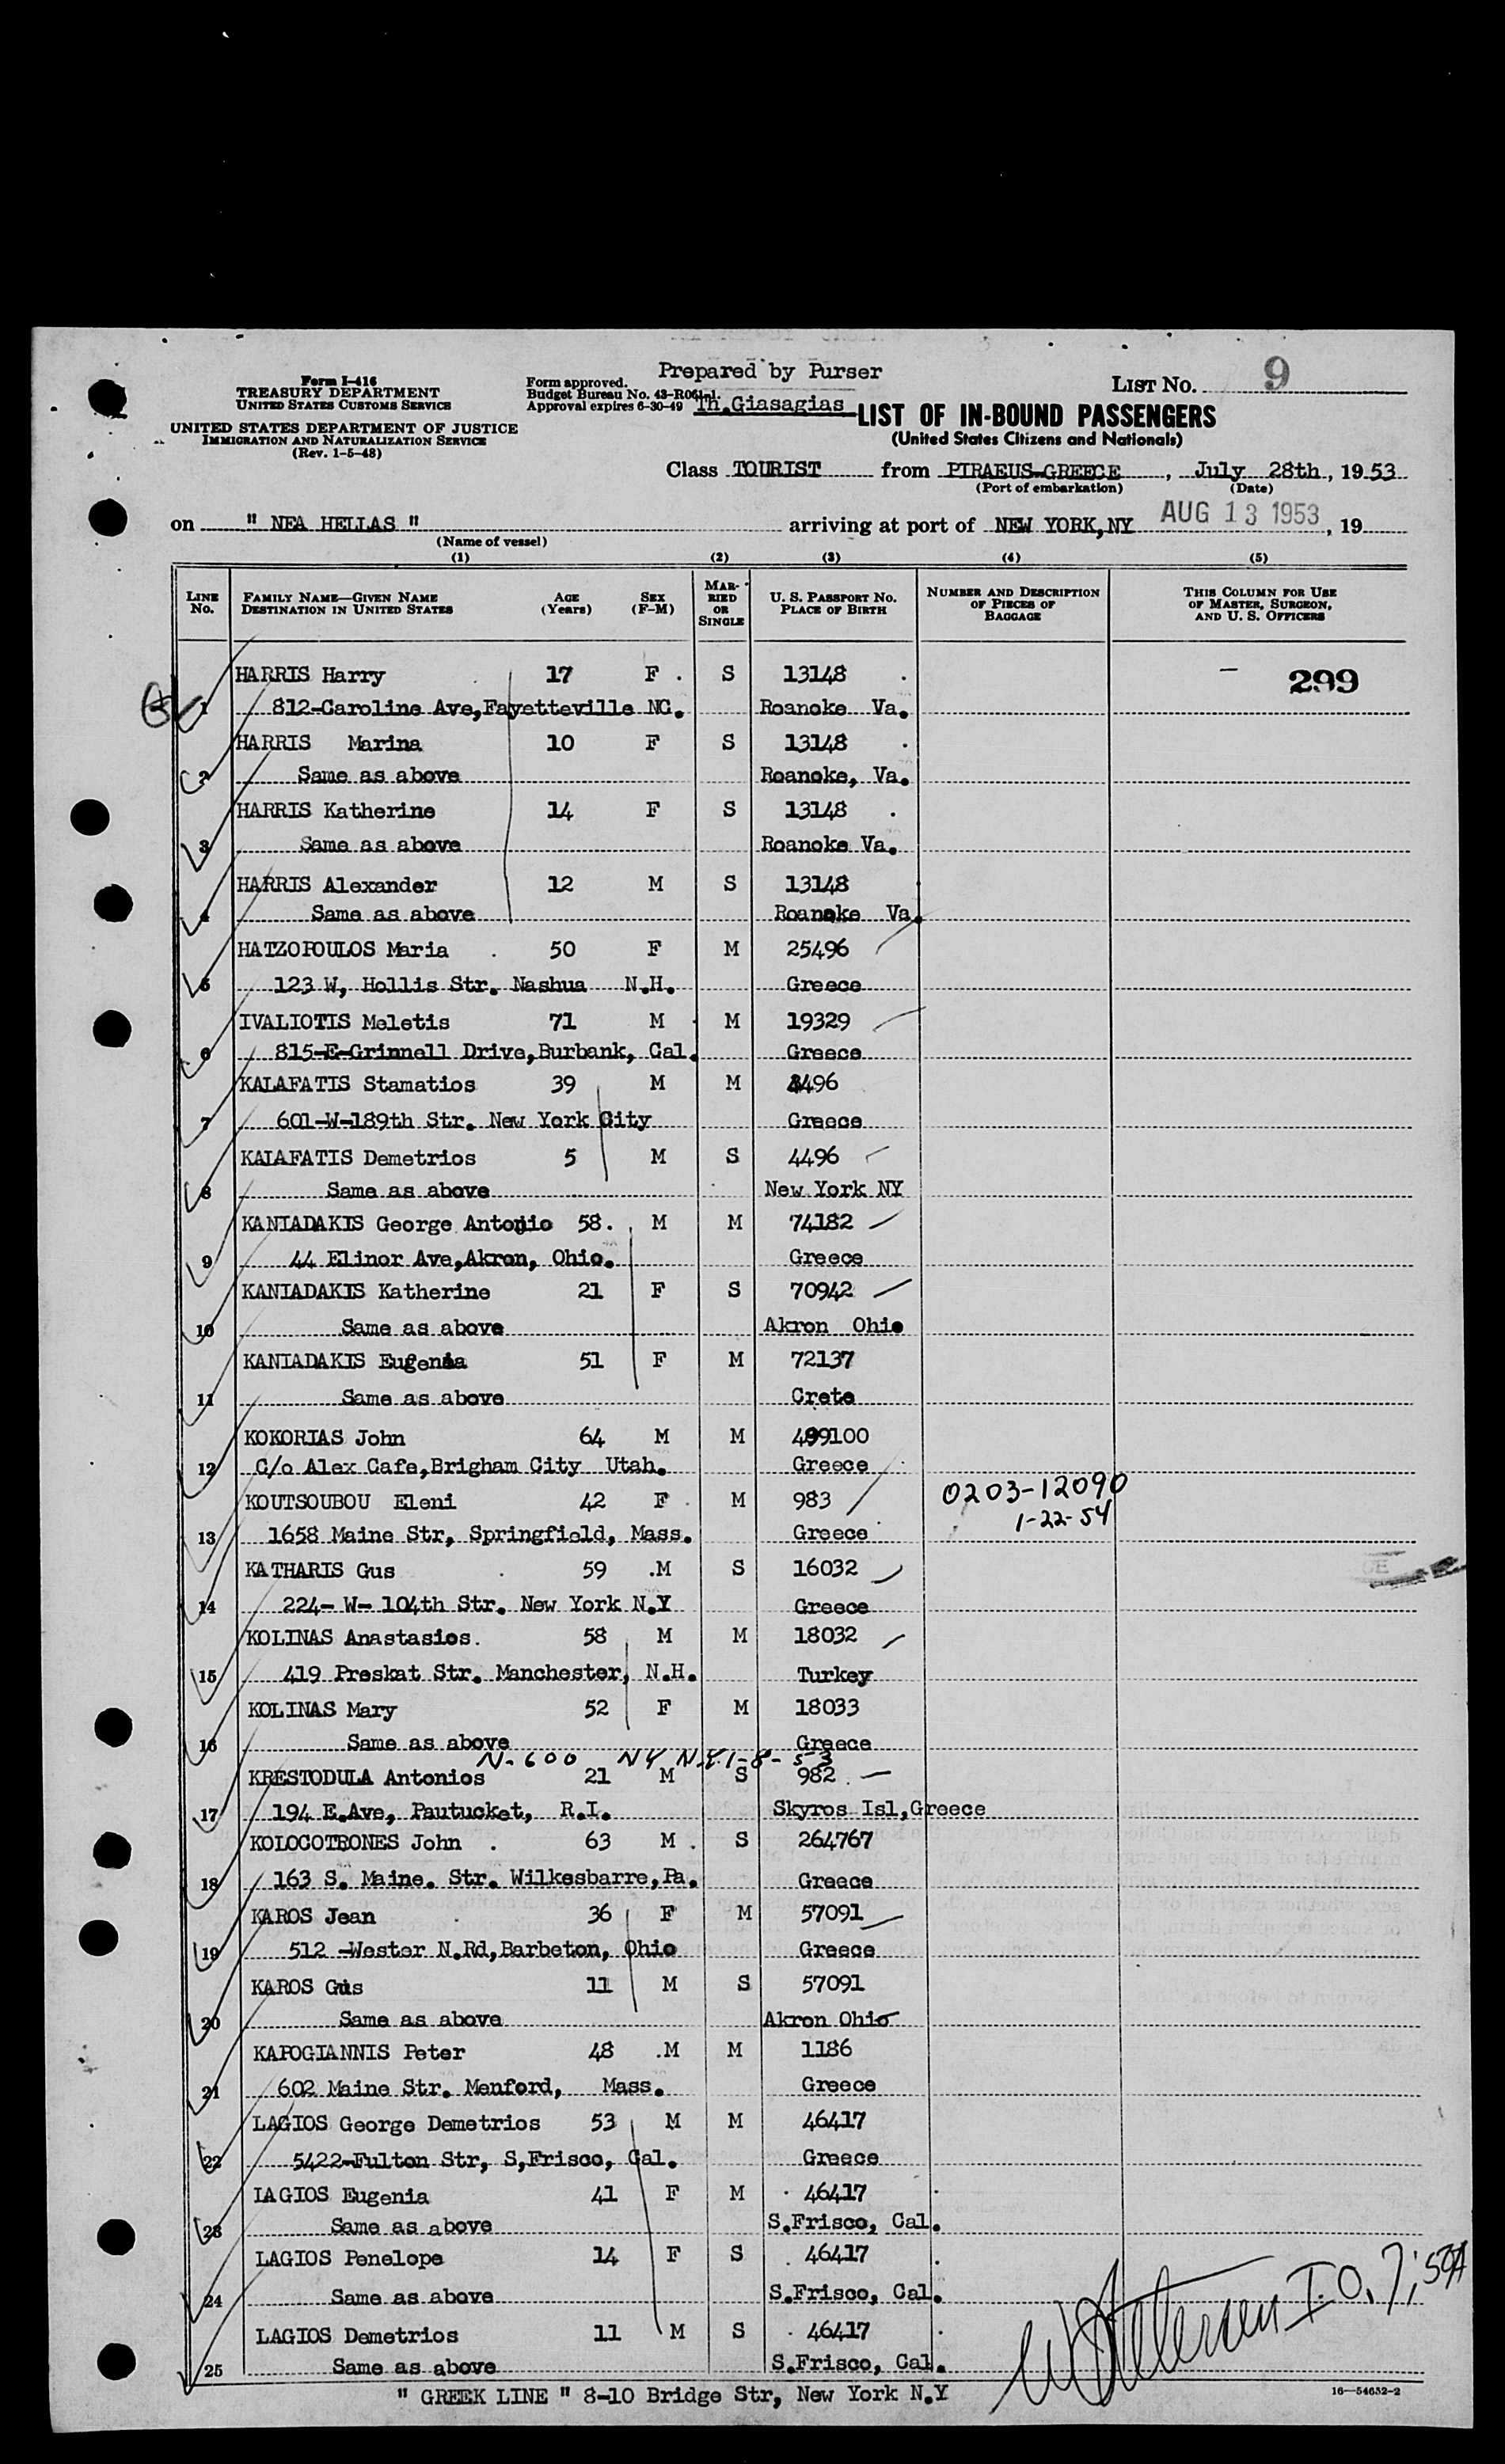 Form I-416
TREASURY DEPARTMENT
UNITED STATES CUSTOMS SERVICE
UNITED STATES DEPARTMENT OF JUSTICE
IMMIGRATION AND NATURALIZATION SERVICE
(Rev. 1-5-48)
Form approved.
Budget Bureau No. 43-R061-1.
Approval expires 6-30-49
Prepared by Purser
Th.Giasagias
LIST NO. 9
LIST OF IN-BOUND PASSENGERS
(United States Citizens and Nationals)
Class TOURIST from PIRAEUS-GREECE, July 28th, 1953
(Port of embarkation) (Date)
on " NEA HELLAS " arriving at port of NEW YORK,NY AUG 13 1953, 19
(Name of vessel)
(1) (2) (3) (4) (5)
LINE NO. FAMILY NAME—GIVEN NAME DESTINATION IN UNITED STATES AGE (Years) SEX (F-M) MARRIED OR SINGLE U. S. PASSPORT NO. PLACE OF BIRTH NUMBER AND DESCRIPTION OF PIECES OF BAGGAGE THIS COLUMN FOR USE OF MASTER, SURGEON, AND U. S. OFFICERS
HARRIS Harry 17 F . S 13148 . – 299
1 812-Caroline Ave,Fayetteville NC. Roanoke Va.
HARRIS Marina 10 F S 13148 .
2 Same as above Roanoke, Va.
HARRIS Katherine 14 F S 13148 .
3 Same as above Roanoke Va.
HARRIS Alexander 12 M S 13148
4 Same as above Roanoke Va.
HATZOPOULOS Maria . 50 F M 25496
5 123 W, Hollis Str. Nashua N.H. Greece
IVALIOTIS Meletis 71 M M 19329
6 815-E-Grinnell Drive,Burbank, Cal. Greece
KALAFATIS Stamatios 39 M M 4496
7 601-W-189th Str. New York City Greece
KALAFATIS Demetrios 5 M S 4496
8 Same as above New York NY
KANIADAKIS George Antonio 58. M M 74182
9 44 Elinor Ave,Akron, Ohio. Greece
KANIADAKIS Katherine 21 F S 70942
10 Same as above Akron Ohio
KANIADAKIS Eugenia 51 F M 72137
11 Same as above Crete
KOKORIAS John 64 M M 499100
12 C/o Alex Cafe,Brigham City Utah. Greece
KOUTSOUBOU Eleni 42 F . M 983 0203-12090
1-22-54
13 1658 Maine Str, Springfield, Mass. Greece
KATHARIS Gus . 59 .M S 16032
14 224- W- 104th Str. New York N.Y Greece
KOLINAS Anastasios. 58 M M 18032
15 419 Preskat Str. Manchester, N.H. Turkey
KOLINAS Mary 52 F M 18033
16 Same as above Greece
N-600 NY N.Y. 1-8-53
KRESTODULA Antonios 21 M S 982 .
17 194 E.Ave, Pautucket, R.I. Skyros Isl,Greece
KOLOCOTRONES John . 63 M . S 264767
18 163 S. Maine. Str. Wilkesbarre,Pa. Greece
KAROS Jean 36 F M 57091
19 512 -Wester N.Rd,Barbeton, Ohio Greece
KAROS Gus 11 M S 57091
20 Same as above Akron Ohio
KAPOGIANNIS Peter 48 .M M 1186
21 602 Maine Str. Menford, Mass. Greece
LAGIOS George Demetrios 53 M M 46417
22 5422-Fulton Str, S,Frisco, Cal. Greece
LAGIOS Eugenia 41 F M . 46417 .
23 Same as above S.Frisco, Cal.
LAGIOS Penelope 14 F S . 46417 .
24 Same as above S.Frisco, Cal.
LAGIOS Demetrios 11 M S . 46417 .
25 Same as above S.Frisco, Cal.
" GREEK LINE " 8-10 Bridge Str, New York N.Y
16—54652-2